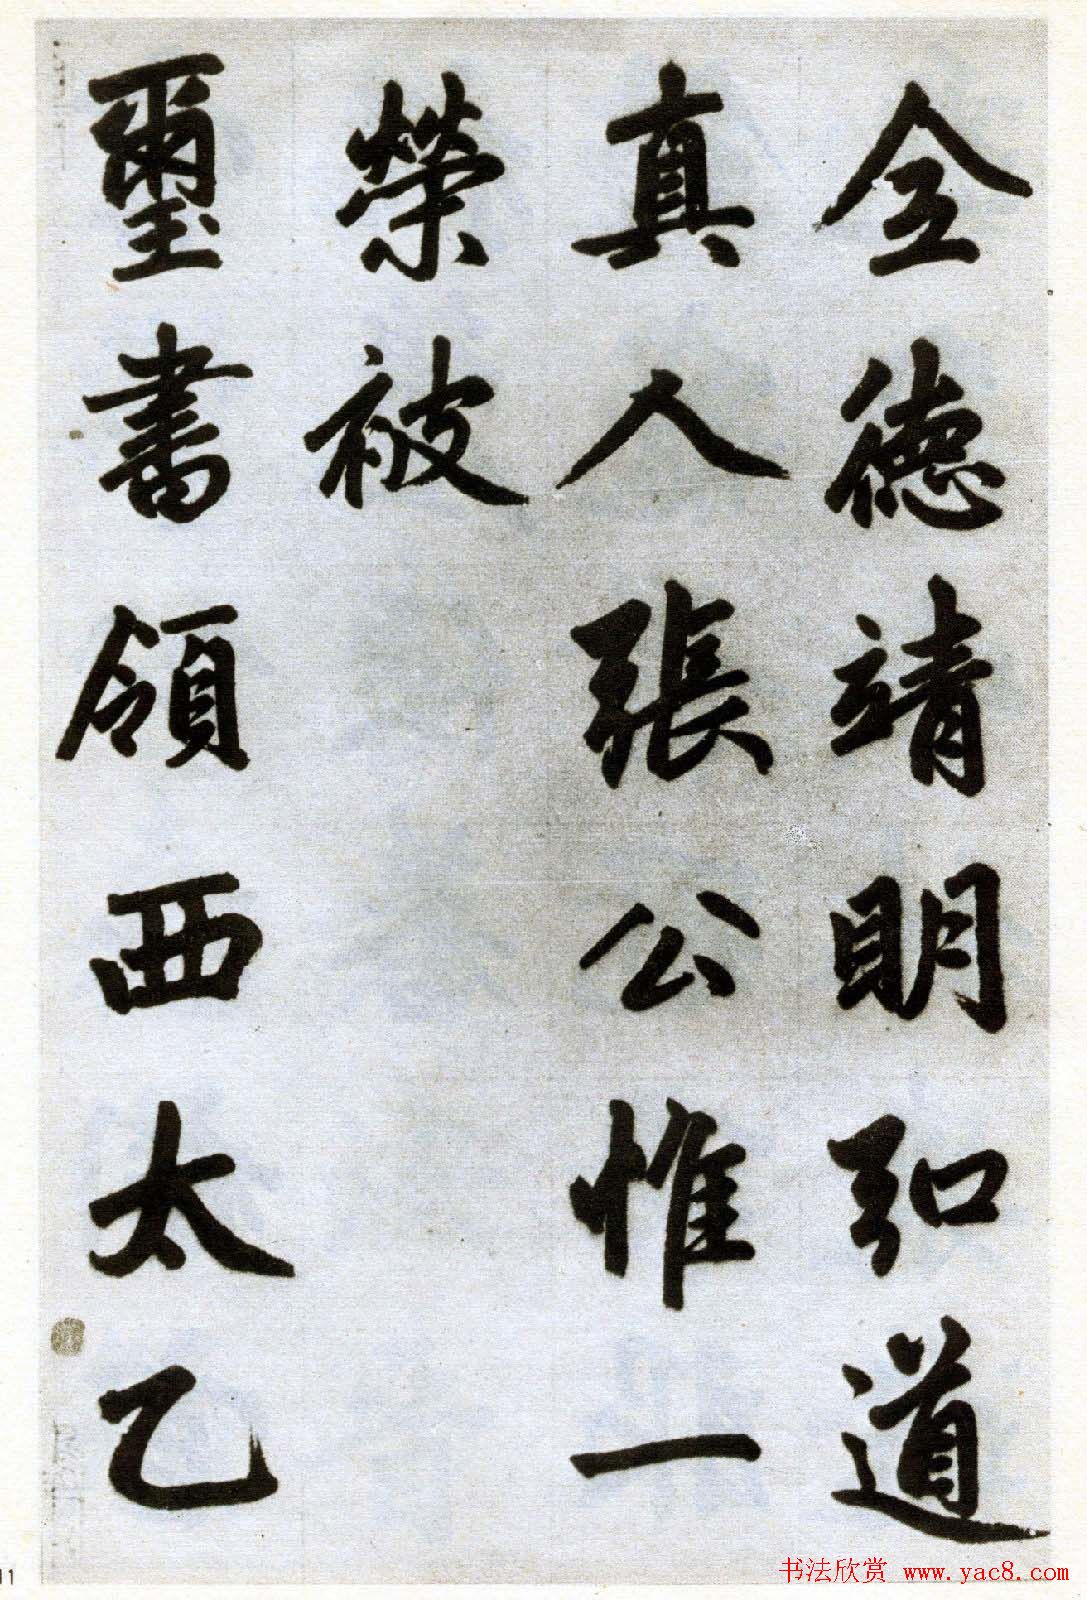 全德靖明弘道
真人張公惟一
榮被
璽書領西太乙
11
书法欣赏 www.yac8.com